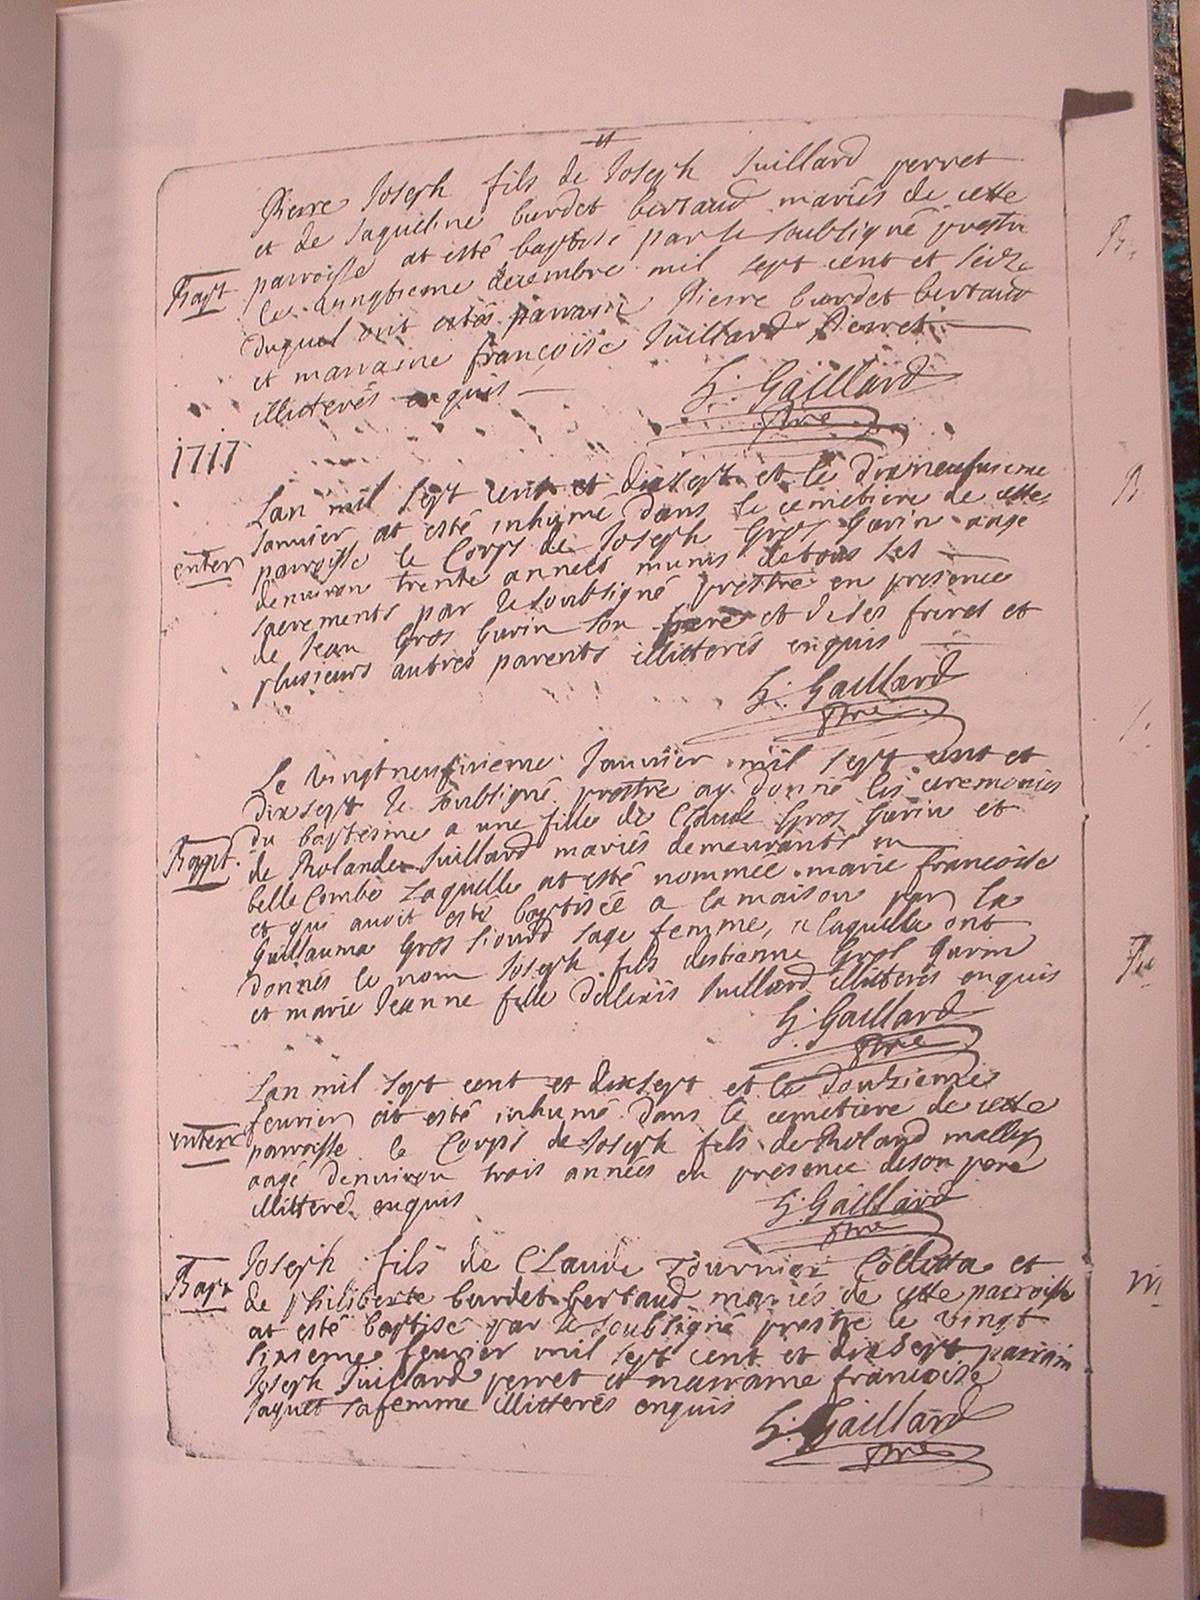 Pierre Joseph fils de Joseph Juillard perret
et de Jaqueline burdet bertaud mariés de cette
parroisse at esté baptisé par le soubsigné prestre
Bapt
le vingtieme decembre mil sept cent et seize
duquel ont estés parrain Pierre burdet bertaud
et marraine francoise Juillard Perret
illitterés enquis
G: Gaillard
Ptre
1717
Lan mil sept cent et dixsept et le dixneufvieme
Janvier at esté inhumé dans le cemetiere de cette
enterr
parroisse le Corps de Joseph Gros Gurin aage
denviron trente années munis de tous les
sacrements par le soubsigné prestre en presence
de Jean Gros Gurin son et de ses freres et
plusieurs autres parents illitterés enquis
G: Gaillard
Ptre
Le vingtneufvieme Janvier mil sept cent et
dixsept le soubsigné prestre ay donné les ceremonies
du baptesme a une fille de Claude Gros Gurin et
Bapt.
de Rolande Juillard mariés demeurants en
belle Combe Laquelle at esté nommée marie francoise
et qui avoit esté baptisée a la maison par la
Guillauma Gros sage femme, a laquelle ont
donnés le nom Joseph fils destienne Gros Gurin
et marie Jeanne fille dalexis Juillard illitterés enquis
G: Gaillard
Ptre
Lan mil sept cent et dixsept et le douzieme
fevrier at esté inhumé dans le cemetiere de cette
enterr
parroisse le Corps de Joseph fils de Roland mally
aagé denviron trois années en presence de son pere
illitteré enquis
G: Gaillard
Ptre
Joseph fils de Claude Tournier Colletta et
Bapt
de philiberte burdet bertaud mariés de cette parroisse
at esté baptisé par le soubsigné prestre le vingt
sixieme fevrier mil sept cent et dixsept parrain
Joseph Juillard perret et marraine francoise
Jaquet sa femme illitterés enquis
G: Gaillard
Ptre